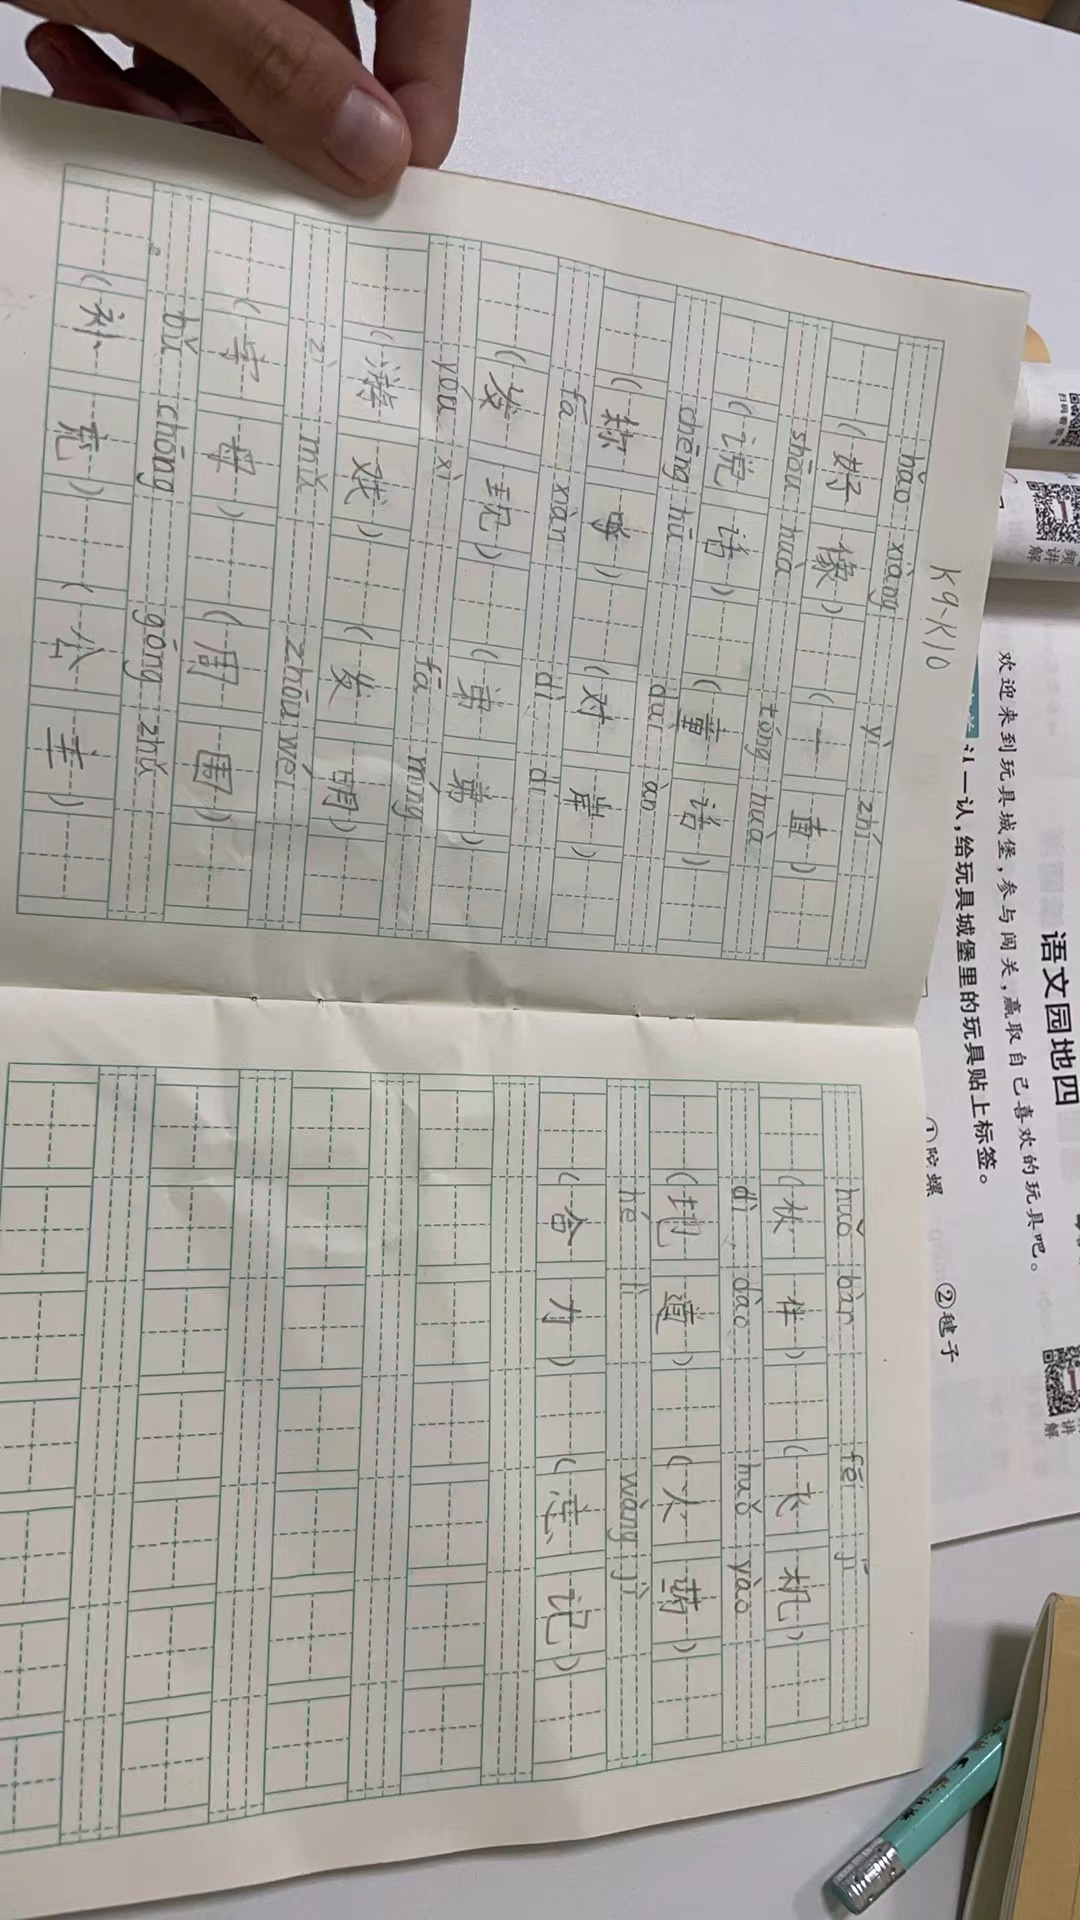 K9-K10
hǎo xiàng yì zhí
(好像) (一直)
shōu huà tóng huà
(说话) (童话)
chēng hū duì àn
(称呼) (对岸)
fā xiàn dì di
(发现) (弟弟)
yóu xì fā míng
(游戏) (发明)
zì mǔ zhōu wéi
(字母) (周围)
bǔ chōng gōng zhǔ
(补充) (公主)
huǒ bàn fēi jī
(伙伴) (飞机)
dì dào huǒ yào
(地道) (火药)
hé lì wàng jì
(合力) (忘记)
语文园地四
欢迎来到玩具城堡,参与闯关,赢取自己喜欢的玩具吧。
认一认,给玩具城堡里的玩具贴上标签。
①陀螺 ②毽子